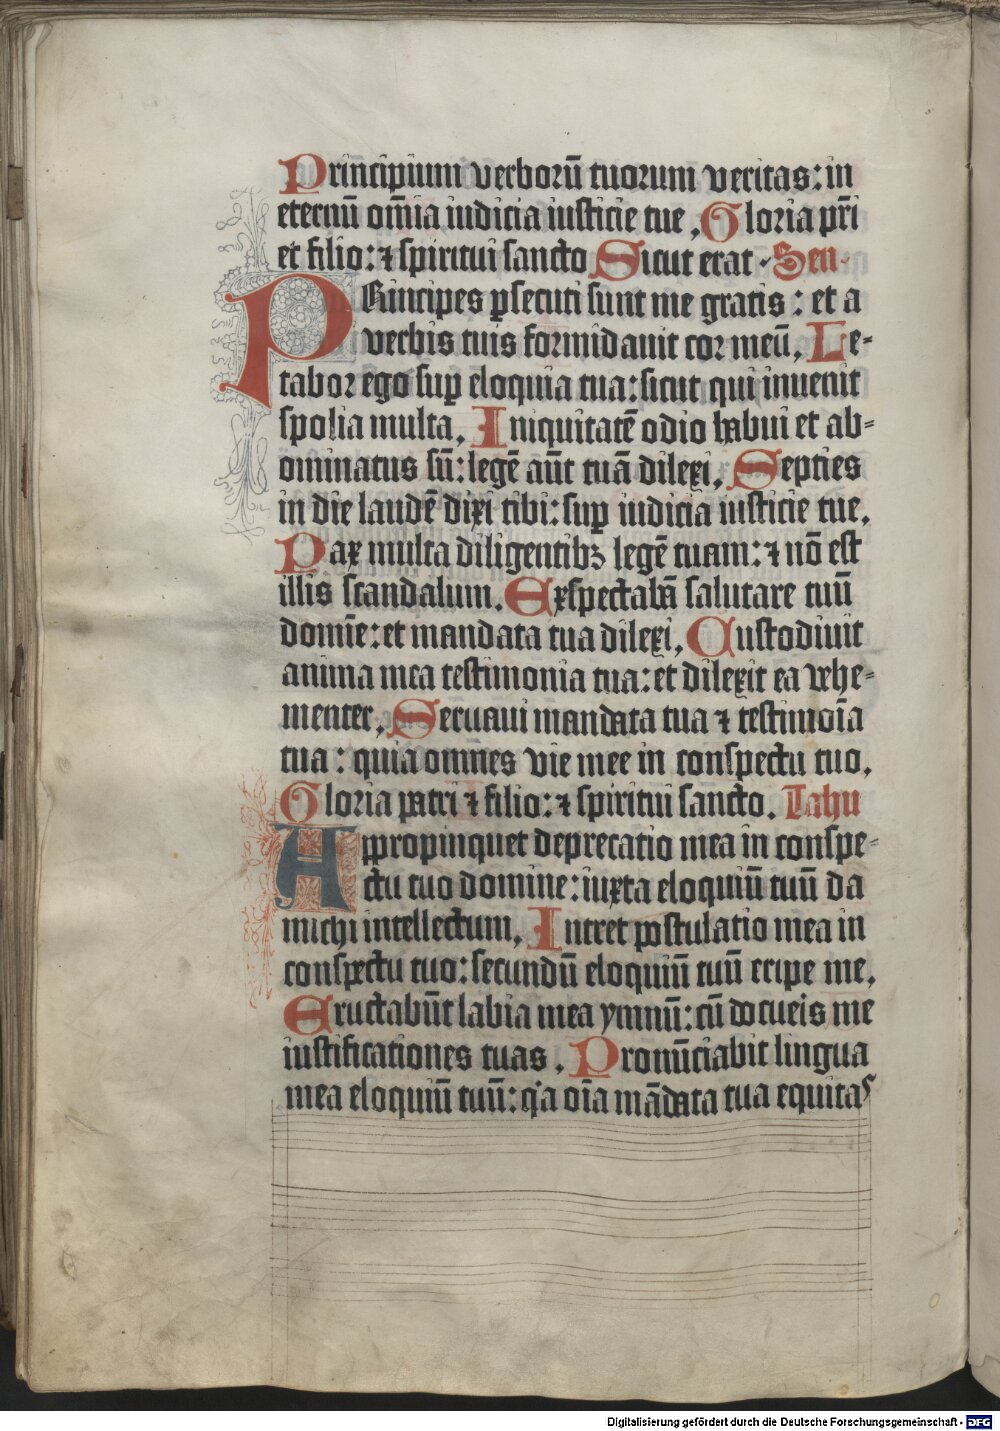 Principium verborū tuorum veritas: in
eternū om̄ia iudicia iusticie tue. Gloria pr̄i
et filio: ⁊ spiritui sancto Sicut erat. Sen.
PRincipes ꝑsecuti sunt me gratis: et a
verbis tuis formidauit cor meū. Le-
tabor ego suꝑ eloquia tua: sicut qui inuenit
spolia multa. Iniquitatē odio habui et ab-
ominatus sū: legē aūt tuā dilexi. Septies
in die laudē dixi tibi: suꝑ iudicia iusticie tue.
Pax multa diligentibꝫ legē tuam: ⁊ nō est
illis scandalum. Exspectabā salutare tuū
domīe: et mandata tua dilexi. Custodiuit
anima mea testimonia tua: et dilexit ea vehe-
menter. Seruaui mandata tua ⁊ testimoīa
tua: quia omnes vie mee in conspectu tuo.
Gloria patri ⁊ filio: ⁊ spiritui sancto. Tahu
Appropinquet deprecatio mea in conspe-
ctu tuo domine: iuxta eloquiū tuū da
michi intellectum. Intret postulatio mea in
conspectu tuo: secundū eloquiū tuū eripe me.
Eructabūt labia mea ymnū: cū docueis me
iustificationes tuas. Pronūciabit lingua
mea eloquiū tuū: q̇a oīa mādata tua equitaˢ
Digitalisierung gefördert durch die Deutsche Forschungsgemeinschaft - DFG